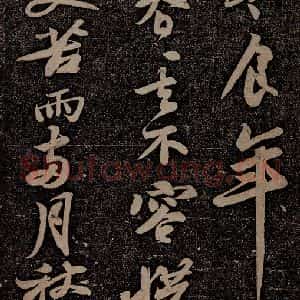 食年
春〻去不容惜
又苦雨兩月秋
Shufawang.CN